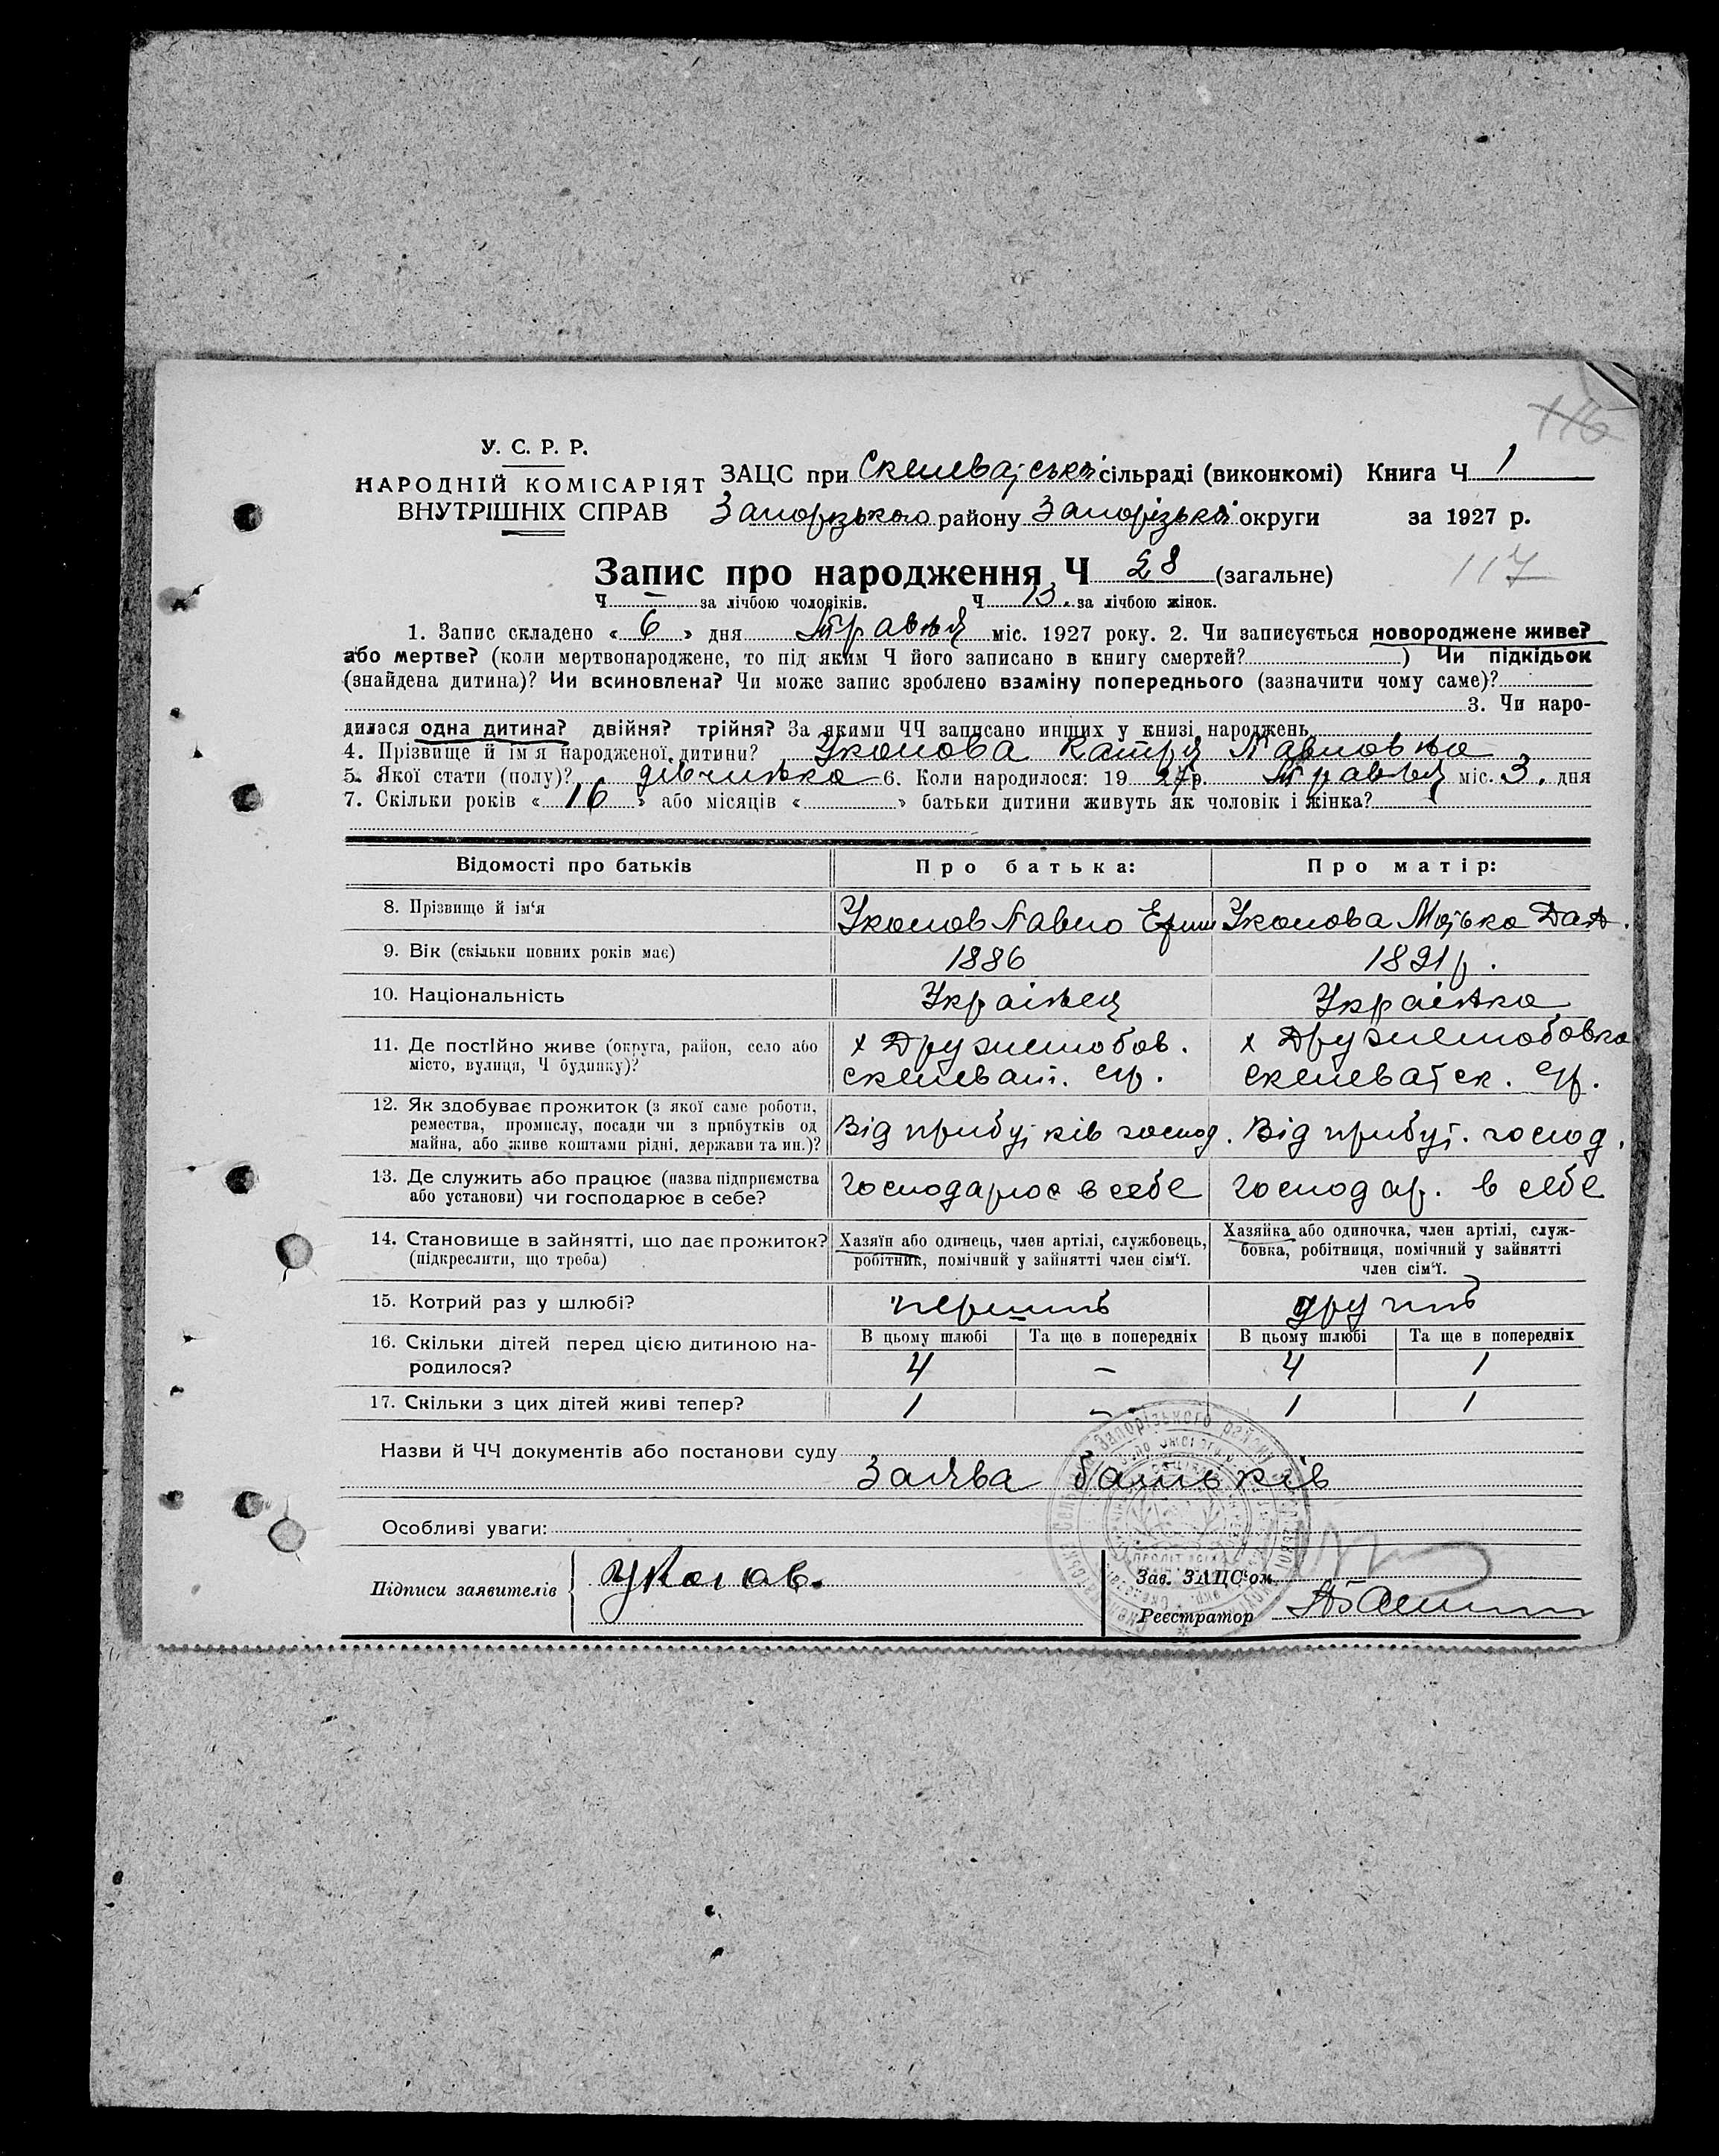 116
У. С. Р. Р.
НАРОДНІЙ КОМІСАРІЯТ
ВНУТРІШНІХ СПРАВ
ЗАЦС при Скелеватській сільраді (виконкомі) Книга Ч 1
Запорізького району Запорізької округи за 1927 р.
Запис про народження Ч 28 (загальне)
117
Ч – за лічбою чоловіків. Ч 13. за лічбою жінок.
1. Запис складено « 6 » дня Травня міс. 1927 року. 2. Чи записується новороджене живе?
або мертве? (коли мертвонароджене, то під яким Ч його записано в книгу смертей? ) Чи підкідьок
(знайдена дитина)? Чи всиновлена? Чи може запис зроблено взаміну попереднього (зазначити чому саме)?
3. Чи наро-
дилася одна дитина? двійня? трійня? За якими ЧЧ записано инших у книзі народжень
4. Прізвище й ім'я народженої дитини? Уколова Катря Павловна
5. Якої стати (полу)? дівчинка 6. Коли народилося: 19 27 р. Травня міс. 3. дня
7. Скільки років « 16 » або місяців « » батьки дитини живуть як чоловік і жінка?
Відомості про батьків Про батька: Про матір:
8. Прізвище й ім'я Уколов Павло Уколова
9. Вік (скільки повних років має) 1886 1891 р.
10. Національність Українец Українка
11. Де постійно живе (округа, район, село або х Дружелюбов. х Дружелюбовка
місто, вулиця, Ч будинку)? Скелеват. ср. Скелеватск. ср.
12. Як здобуває прожиток (з якої саме роботи,
ремества, промислу, посади чи з прибутків од Від прибутків господ. Від прибут. господ.
майна, або живе коштами рідні, держави та ин.)?
13. Де служить або працює (назва підприємства господарює в себе господар. в себе
або установи) чи господарює в себе?
14. Становище в зайнятті, що дає прожиток? Хазяїн або одинець, член артілі, службовець, Хазяйка або одиночка, член артілі, служ-
(підкреслити, що треба) робітник, помічний у зайнятті член сім'ї. бовка, робітниця, помічний у зайнятті
член сім'ї.
15. Котрий раз у шлюбі? перший другий
16. Скільки дітей перед цією дитиною на- В цьому шлюбі Та ще в попередніх В цьому шлюбі Та ще в попередніх
родилося? 4 – 4 1
17. Скільки з цих дітей живі тепер? 1 – 1 1
Назви й ЧЧ документів або постанови суду
Заява батьків
Особливі уваги:
Підписи заявителів Уколов.
Зав. ЗАЦС'ом
Реєстратор